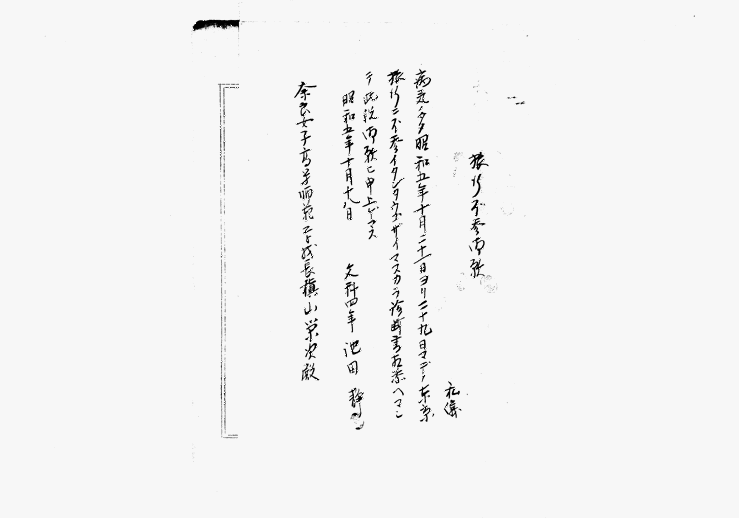 旅行不参御願
私儀
病気ノタメ昭和五年十月二十一日ヨリ二十九日マデノ東京
旅行ニ不参イタシタウゴザイマスカラ診断書相添ヘマシ
テ此段御願ヒ申上ゲマス
昭和五年十月十九日
文科四年 池田 静
奈良女子高等師範学校長槇山栄次殿